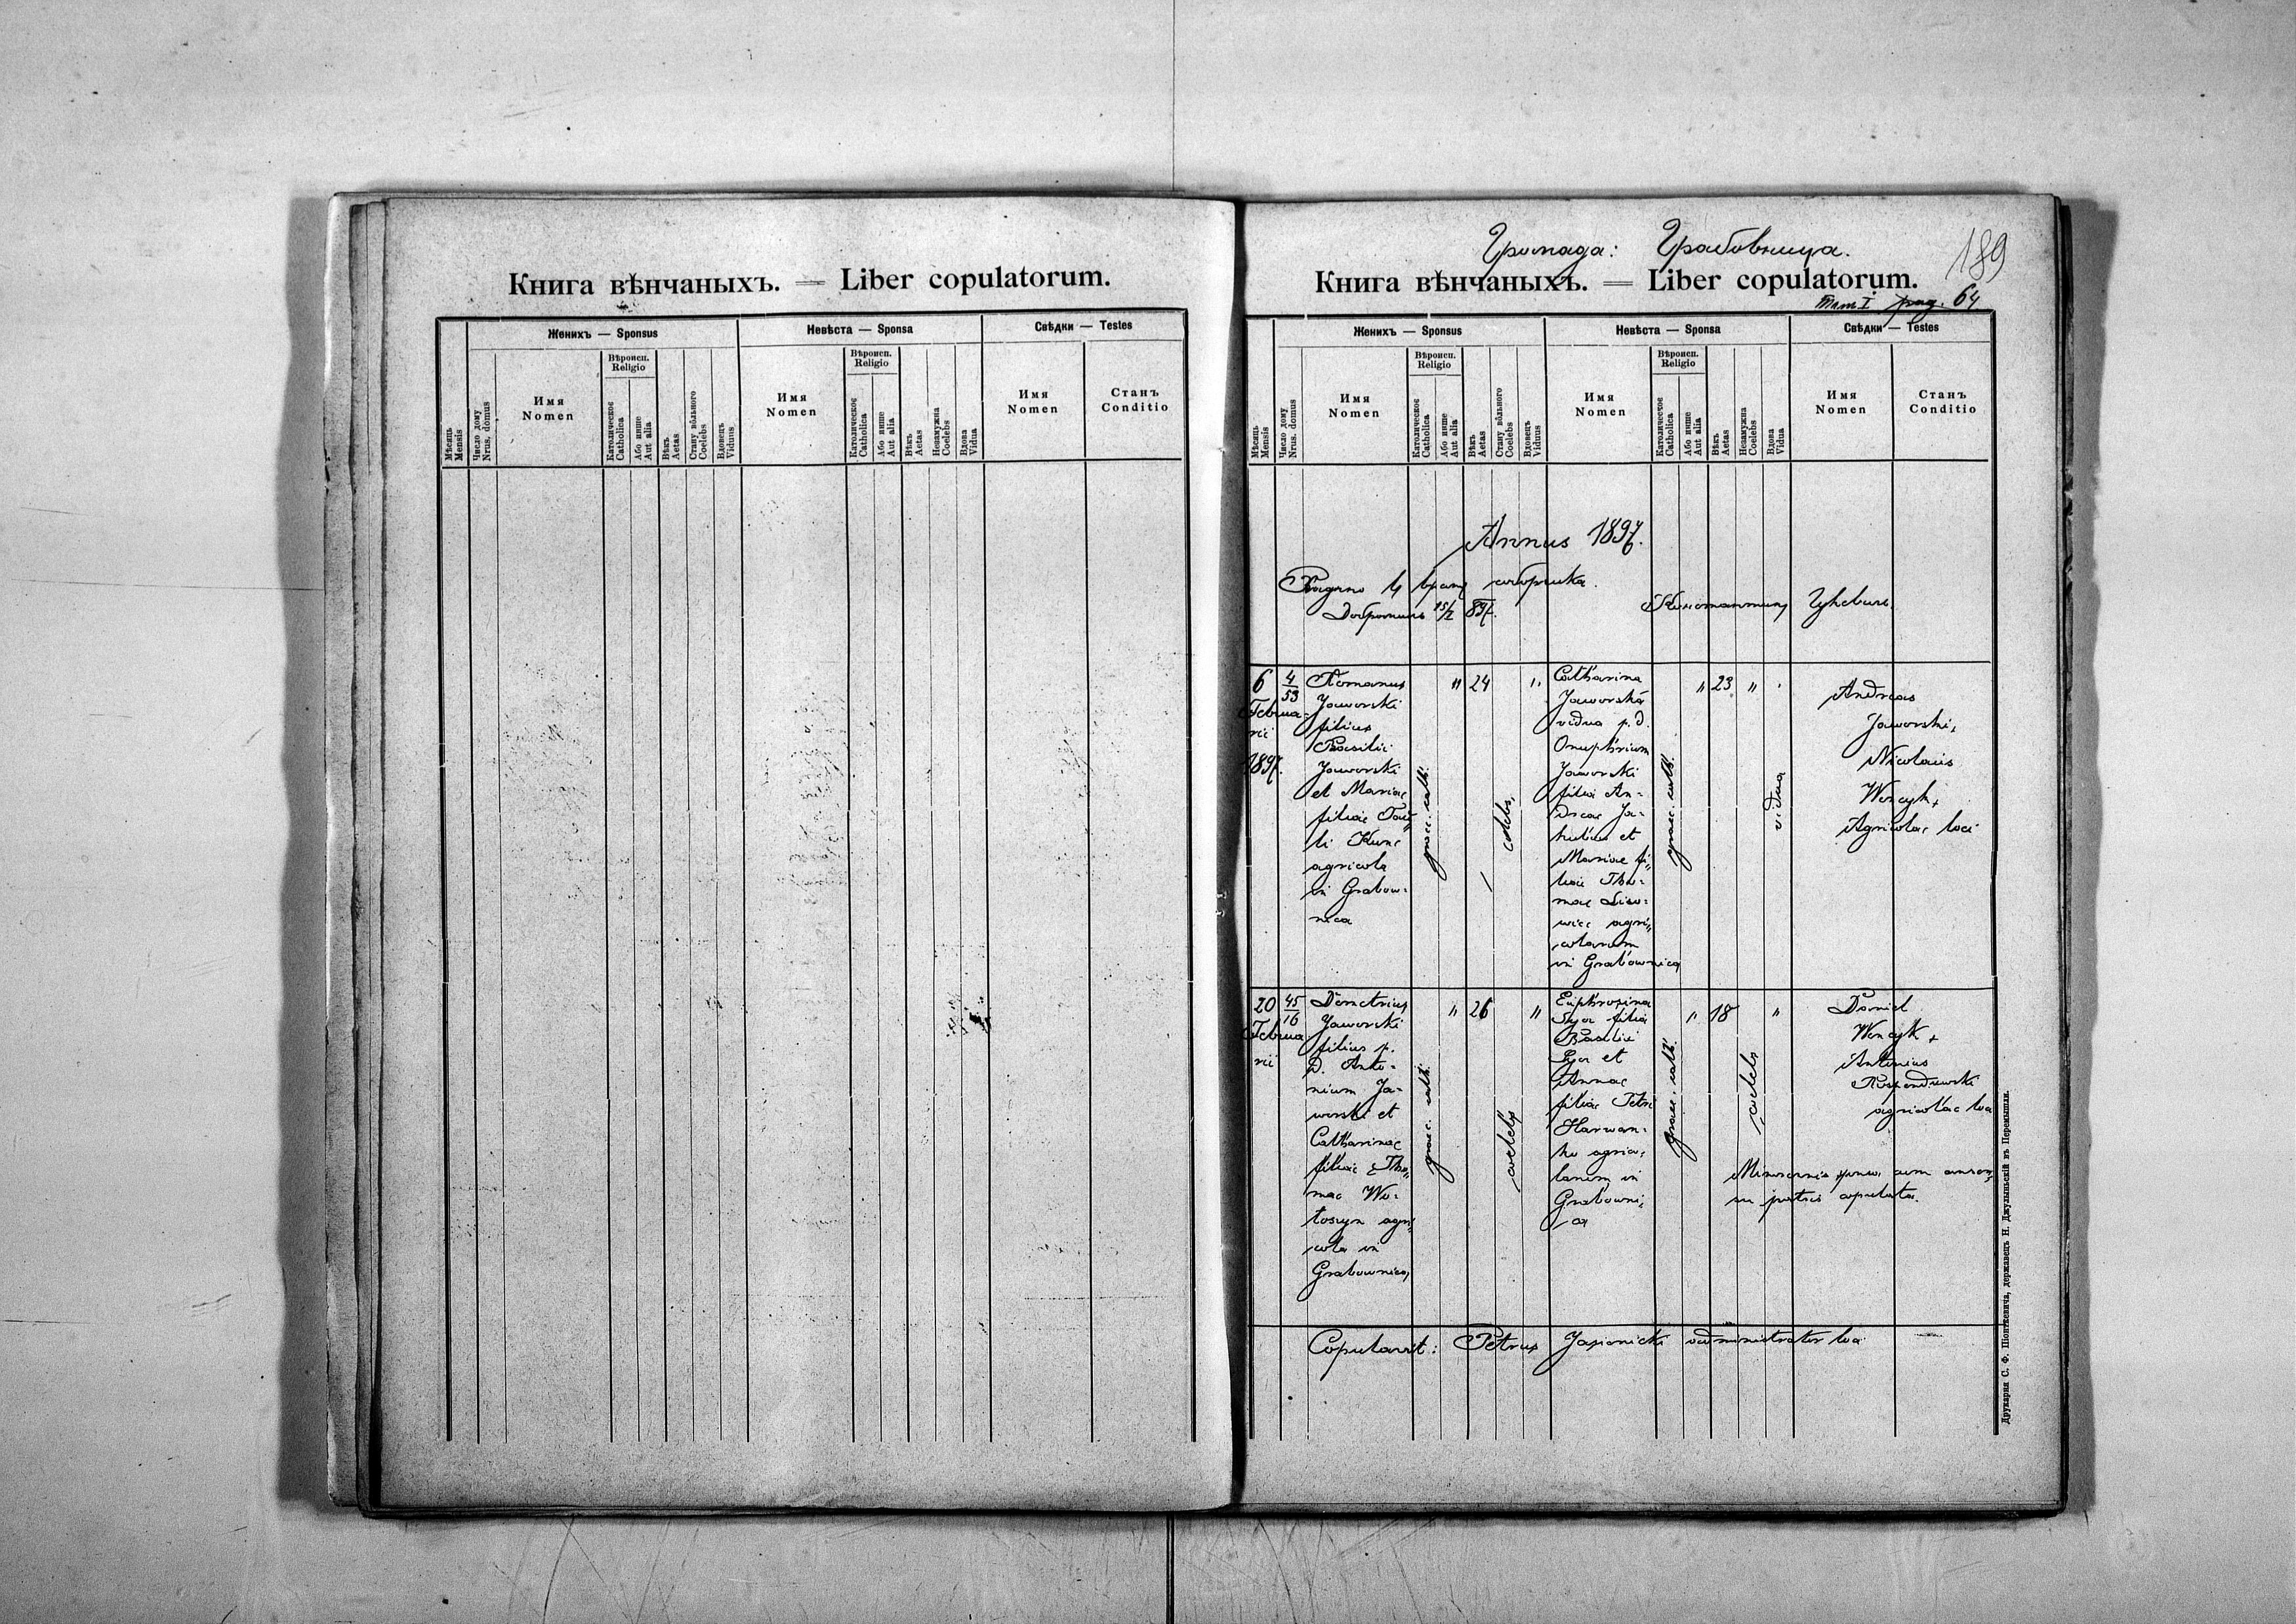 Книга вѣнчаныхъ. — Liber copulatorum.
Женихъ — Sponsus
Невѣста — Sponsa
Свѣдки — Testes
Мѣсяць Mensis
Число дому Nrus. domus
Имя Nomen
Вѣроисп. Religio
Католическое Catholica
Або инше Aut alia
Вѣкъ Aetas
Стану вôльного Coelebs
Вдовець Viduus
Имя Nomen
Вѣроисп. Religio
Католическое Catholica
Або инше Aut alia
Вѣкъ Aetas
Незамужна Coelebs
Вдова Vidua
Имя Nomen
Станъ Conditio
Громада: Грабовница.
189
Книга вѣнчаныхъ. — Liber copulatorum.
Tom I. pag. 64
Женихъ — Sponsus
Невѣста — Sponsa
Свѣдки — Testes
Мѣсяць Mensis
Число дому Nrus. domus
Имя Nomen
Вѣроисп. Religio
Католическое Catholica
Або инше Aut alia
Вѣкъ Aetas
Стану вôльного Coelebs
Вдовець Viduus
Имя Nomen
Вѣроисп. Religio
Католическое Catholica
Або инше Aut alia
Вѣкъ Aetas
Незамужна Coelebs
Вдова Vidua
Имя Nomen
Станъ Conditio
Annus 1897.
Добромиль 15/2 897.
6
Februa-
rii
1897.
4
53
Romanus
Jaworski
filius
Basilii
Jaworski
et Mariae
filiae Pau-
li Kunc
agricola
in Grabow-
nica
graec. cath.
" 24
coelebs
"
Catharina
Jaworska
vidua p. d.
Onuphrium
Jaworski
filia An-
dreae Ja-
et
Mariae fi-
liae Tho-
mae
agri-
colarum
in Grabownica
graec. cath.
" 23 "
vidua
Andreas
Jaworski,
Nicolaus
Wencyk +
Agricolae loci
20
Februa
rii
45
16
Demetrius
Jaworski
filius p.
d. Anto-
nium Ja-
worski et
Catharinae
filiae Tho-
mae Wo-
toszyn agri-
cola in
Grabownica
graec. cath.
" 26
coelebs
"
Euphrosina
filia
Basilii
et
Annae
filiae Petri
Harwan-
ko agrico-
larum in
Grabowni-
ca
graec. cath.
" 18
coelebs
"
Daniel
Wencyk +
Antonius
agricolae loci
Minorennis cum
su patris copulata.
Copulavit: Petrus Jasienicki administrator loci
Друкарня С. Ф. Піонткевича, державець Н. Джулыньскій въ Перемышли.